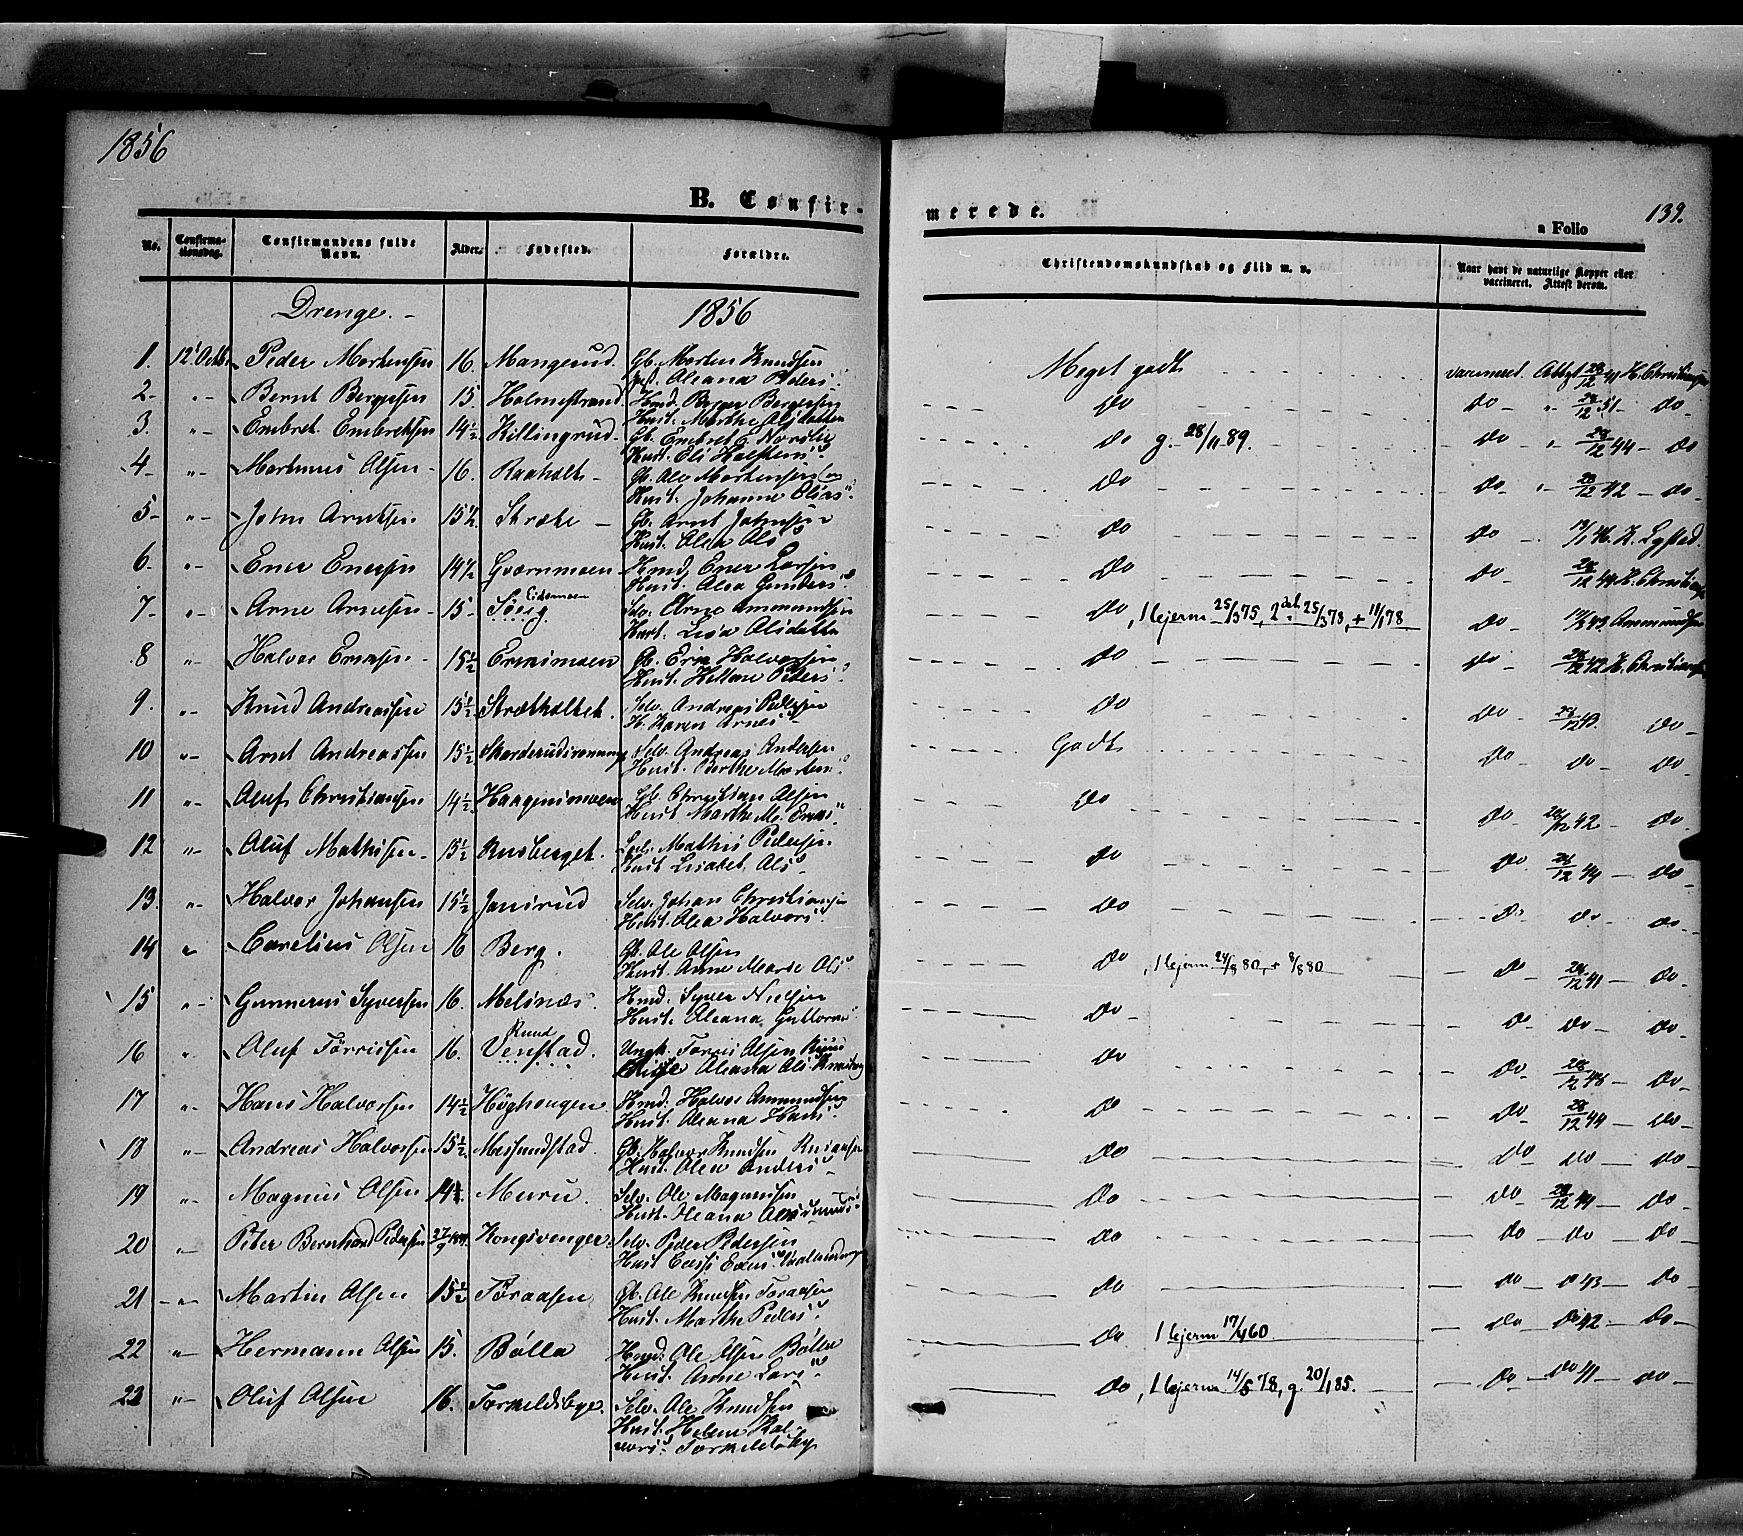 1856
B. Confir-
merede.
139.
a Folio
No.
Confirma-
tionsdag.
Confirmandens fulde
Navn.
Alder.
Fødested.
Forældre.
Christendomskundskab og Flid m. v.
Naar havt de naturlige Kopper eller
vaccineret. Attest derom.
Drenge. -
1856
1. 12' Octb. Peder Mortensen 16. Mangerud. Gb. Morten Knudsen
Hust. Oleana Peders:
Meget godt vaccineret. Attest 28/12 41 H. Christiansen
2- "- Bernt Bergersen 15 Holmestrand Hmd. Berger Bergersen
Hust. Marthe Olsdatter
do do " 28/12 51- do
3. "- Embret Embretsen 14½ Killingrud. Gb. Embret E. Nordlie
Hust. Eli Halsteins
do g. 28/11 89. do " 28/12 44 - do
4- "- Martinus Olsen - 16. Raaholt - Gb. Ole Mortensen
Hust. Johanne Elias:
do do - 28/12 42 - do
5- "- John Arntsen 15½. Stræte - Gb. Arnt Johnsen
Hust. Olea Ols:
do do - K. Lysted.
6- "- Ener Enersen 14½ Gværnmoen Hmd. Ener Larsen
Hust. Olea Gunders:
do do - 28/12 44 H. Christiansen
7- "- Arne Arnesen - 15- Eidsmoen
Selv. Arne Ammundsen
Hust. Lisa Olsdatter
do, 1 lejerm 25/3 75, 2det 25/3 78, + 11/1 78 do - Ammundsen
8 "- Halvor Ericksen - 15½ Ericsmoen Gb. Eric Halvorsen
Hust. Peders:
do do - 28/12 42 H. Christiansen
9. "- Knud Andreassen 15½ Strætholtet. Selv. Andreas Pedersen
H. Karen Arnes:
do do - 28/12 43. do
10 "- Arnt Andreassen 15½ Skarderudsvang Selv. Andreas Andersen
Hust. Berthe Martin:
Godt do - do - do
11 "- Oluf Christiansen 14½ Haagensmoen Gb. Christian Olsen
Hust. Marthe M. Erics:
do do 28/12 42 - do
12 "- Oluf Mathisen - 15½ Rusberget. Selv. Mathis Pedersen
Hust. Lisabet Ols:
do do 28/12 44 - do
13. "- Halvor Johansen 15½ Jansrud Selv. Johan Christiansen
Hust. Olea Halvors:
do do do - do
14 " Carelius Olsen 16 Berg. Gb. Ole Olsen
Hust. Anne Marie Ols:
do, 1 lejerm 24/8 80, + 8/8 80 do 28/12 41 - do
15 "- Gunnerus Syversen 16. Melsnæs. Hmd. Syver Nielsen
Hust. Oleana Guttorms:
do - do - do - do
16 " Oluf Törrissen 16. Ruud
Venstad. Ungk. Törris Olsen Ruud
Pige Oleana Ols:
do do - 28/12 - do
17 " Hans Halvorsen 14½ Höghougen Hmd. Halvor Ammundsen
Hust. Oleana Hans:
do do - 28/12 44 - do
18 "- Andreas Halvorsen 15½ Mesundstad. Gb. Halvor Knudsen
Hust. Olea Anders:
do do do - do
19 "- Magnus Olsen 14½ Muru. Selv. Ole Magnussen
Hust. Oleana
do do 28/12 44 - do
20 "- Peter Bernhard Pedersen 27/9 Kongsvenger. Selv. Peder Pedersen
Hust.
do do do do
21 - "- Martin Olsen 15½ Toraasen Gb. Ole Knudsen Toraasen
Hust. Marthe Peders:
do do do 43 - do
22 "- Hermann Olsen 15. Bölla Hmd. Ole Olsen Bölla
Hust. Anne Lars:
do 1 lejerm 17/4 60 do do 42 - do
23 "- Oluf Olsen 16. Torkeldsbye. Selv. Ole Knudsen
Hust. Helene Hal-
vors: Torkeldsby
do, 1 lejerm 14/5 78, g. 20/1 85. do do 41 - do